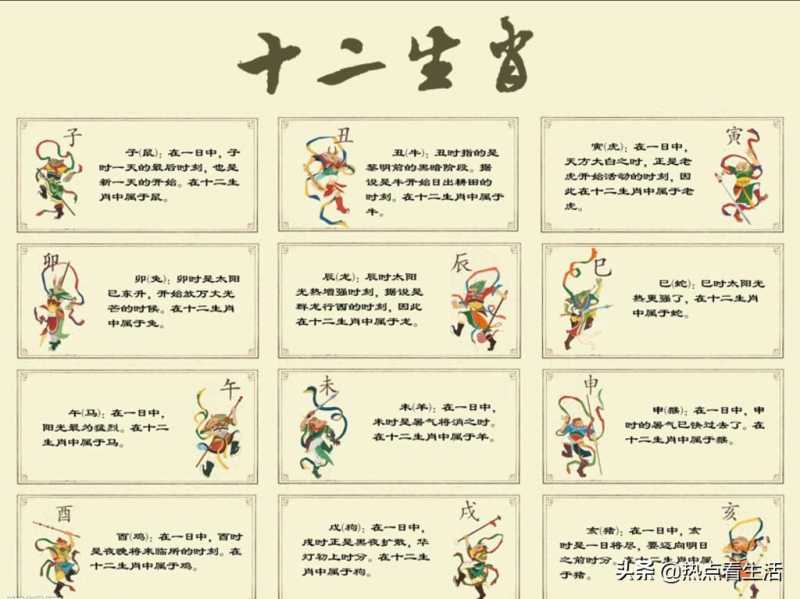 十二生肖
子
子(鼠)：在一日中，子
时一天的最后时刻，也是
新一天的开始。在十二生
肖中属于鼠。
丑
丑(牛)：丑时指的是
黎明前的黑暗阶段。据
设是牛开始日出耕田的
时刻。在十二生肖中属于
牛。
寅
寅(虎)：在一日中，
天方大白之时，正是老
虎开始活动的时刻，因
此在十二生肖中属于老
虎。
卯
卯(兔)：卯时是太阳
已东升，开始放万大光
芒的时候。在十二生
肖中属于兔。
辰
辰(龙)：辰时太阳
光热增强时刻，据设是
群龙行西的时刻，因此
在十二生肖中属于龙。
巳
巳(蛇)：巳时太阳光
热更强了，在十二生肖
中属于蛇。
午
午(马)：在一日中，
阳光最为猛烈。在十二
生肖中属于马。
未
未(羊)：在一日中，
未时是暑气将消之时。
在十二生肖中属于羊。
申
申(猴)：在一日中，申
时的暑气已快过去了。在
十二生肖中属于猴。
酉
酉(鸡)：在一日中，酉时
是夜晚将来临所的时刻。在
十二生肖中属于鸡。
戌
戌(狗)：在一日中，
戌时正是黑夜扩散，华
灯初上时分。在十二生
肖中属于狗。
亥
亥(猪)：在一日中，亥
时是一日将尽，要迈向明日
之前时分。在十二生肖中属
于猪。
头条 @热点看生活